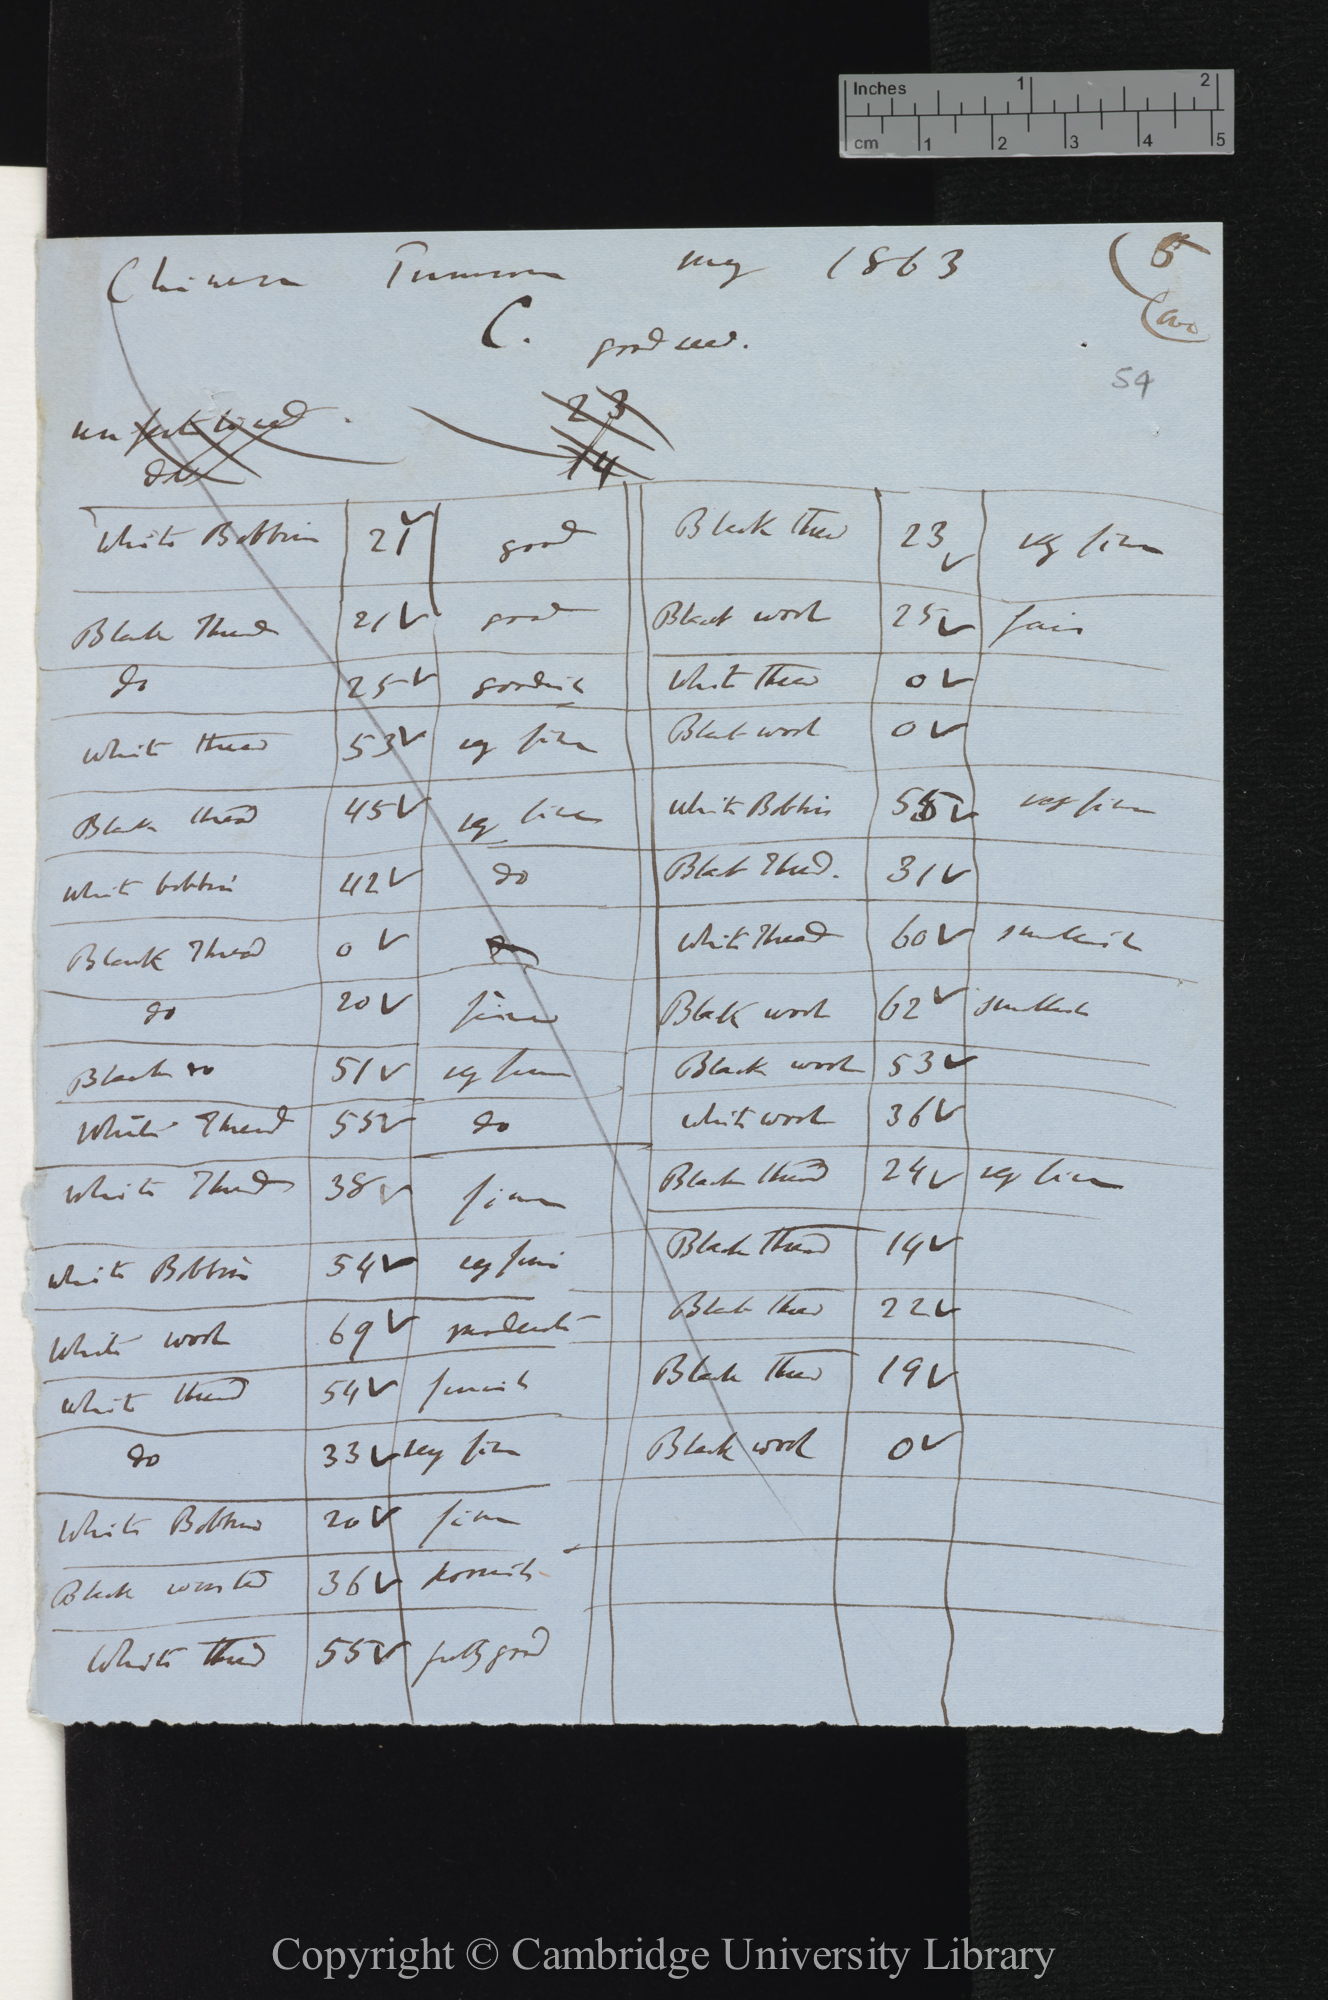 Inches 1 2
cm 1 2 3 4 5
Chinese Primrose May 1863 (5
C. good seed.
54
unfertilised
do
23
14
White Bobbin 21 ✓ good
Black Thread 21 ✓ good
do 25 ✓ goodish
White thread 53 ✓ very fine
Black thread 45 ✓ very fine
White bobbin 42 ✓ do
Black Thread 0 ✓ do
do 20 ✓
Black do 51 ✓ very fine
White Thread 55 ✓ do
White Thread 38 ✓ fine
White Bobbin 54 ✓ very fine
White wool 69 ✓ moderate
White thread 54 ✓
do 33 ✓ very fine
White Bobbin 20 ✓ fine
Black worsted 36 ✓ poorish
White thread 55 ✓ good
Black thread 23 ✓ very fine
Black wool 25 ✓ fair
White thread 0 ✓
Black wool 0 ✓
White Bobbin 55 ✓ very fine
Black Thread. 31 ✓
White Thread 60 ✓ smallish
Black wool 62 ✓ smallish
Black wool 53 ✓
White wool 36 ✓
Black thread 24 ✓ very fine
Black Thread 14 ✓
Black thread 22 ✓
Black thread 19 ✓
Black wool 0 ✓
Copyright © Cambridge University Library